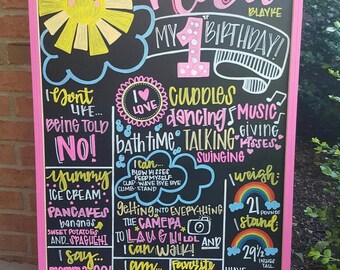 BLAYKE
MY 1ST BIRTHDAY!
I Don't
LIFE...
BEING TOLD
NO!
I
LOVE
CUDDLES
dancing
MUSIC
bath time
TALKING
GIVING
KISSES
SWINGING
I can...
BLOW KISSES
FEED MYSELF
CLAP WAVE BYE BYE
CLIMB STAND
yummy
ICE CREAM
PANCAKES
bananas
SWEET POTATOES
AND SPAGHETTI
I weigh:
21
POUNDS
I stand:
29½
INCHES
TALL
getting INTO EVERYTHING
THE CAMERA
TO LAUGH! LOL AND
I can WALK!
I say...
I am...
FAVORITE
HAVE